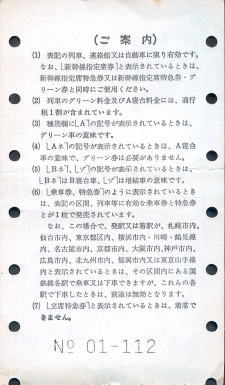 (ご 案 内)
(1) 表記の列車、連絡船又は自動車に限り有効です。
なお、〔新幹線指定席券〕と表示されているときは、
新幹線指定席特急券又は新幹線指定席特急券・グ
リーン券と同時にご使用ください。
(2) 列車のグリーン料金及びA寝台料金には、通行
税1割が含まれています。
(3) 種別欄に〔グ〕の記号が表示されているときは、
グリーン車の意味です。
(4) 〔Aネ〕の記号が表示されているときは、A寝台
車の意味で、グリーン券は必要がありません。
(5) 〔Bネ〕、〔ゾ〕の記号が表示されているときは、
〔BネはB寝台車、〔ゾは増結車の意味です。
(6) 〔乗車券、特急券〕のように表示されているとき
は、表記の区間、列車等に有効な乗車券と特急券と
が1枚で発売されています。
なお、この場合で、発駅又は着駅が、札幌市内、
仙台市内、東京都区内、横浜市内・川崎・鶴見線
内、名古屋市内、京都市内、大阪市内、神戸市内、
広島市内、北九州市内、福岡市内又は東京山手線
内と表示されているときは、その区間内にある国
鉄線各駅で乗車又は下車できますが、これらの各
駅で下車したときは、前途は無効となります。
(7) 〔立席特急券〕と表示されているときは、着席で
きません。
№ 01-112